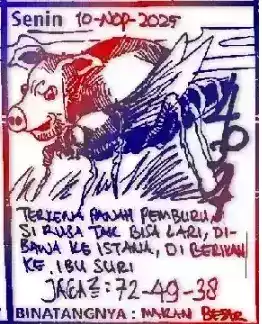 Senin 10-NOP-2025
TERKENA PANAH PEMBURU
SI RUSA TAK BISA LARI, DI-
BAWA KE ISTANA, DI BERIKAN
KE IBU SURI
JAGA²: 72-49-38
BINATANGNYA : MAKAN BESAR